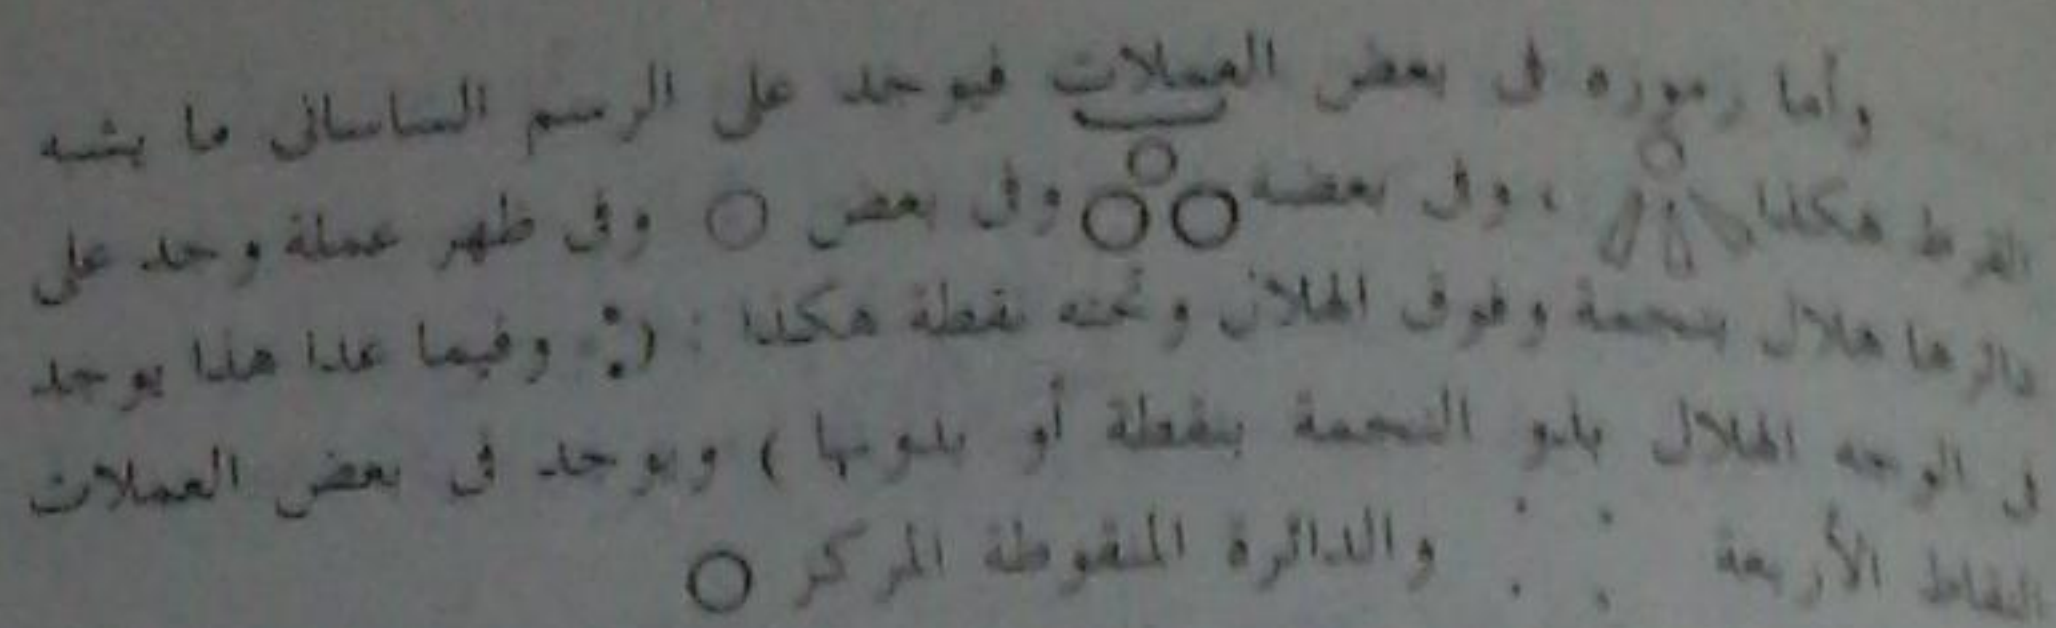 وأما رموزه في بعض العملات فيوجد على الرسم الساساني ما يشبه
القرط هكذا ، وفي بعضه وفي بعض ○ وفي ظهر عملة وجد على
دائرها هلال بنجمة وفوق الهلال وتحته نقطة هكذا : وفيما عدا هذا يوجد
في الوجه الهلال بدو النجمة بنقطة أو بدونها ) ويوجد في بعض العملات
النقاط الأربعة : : والدائرة المنقوطة المركز ○